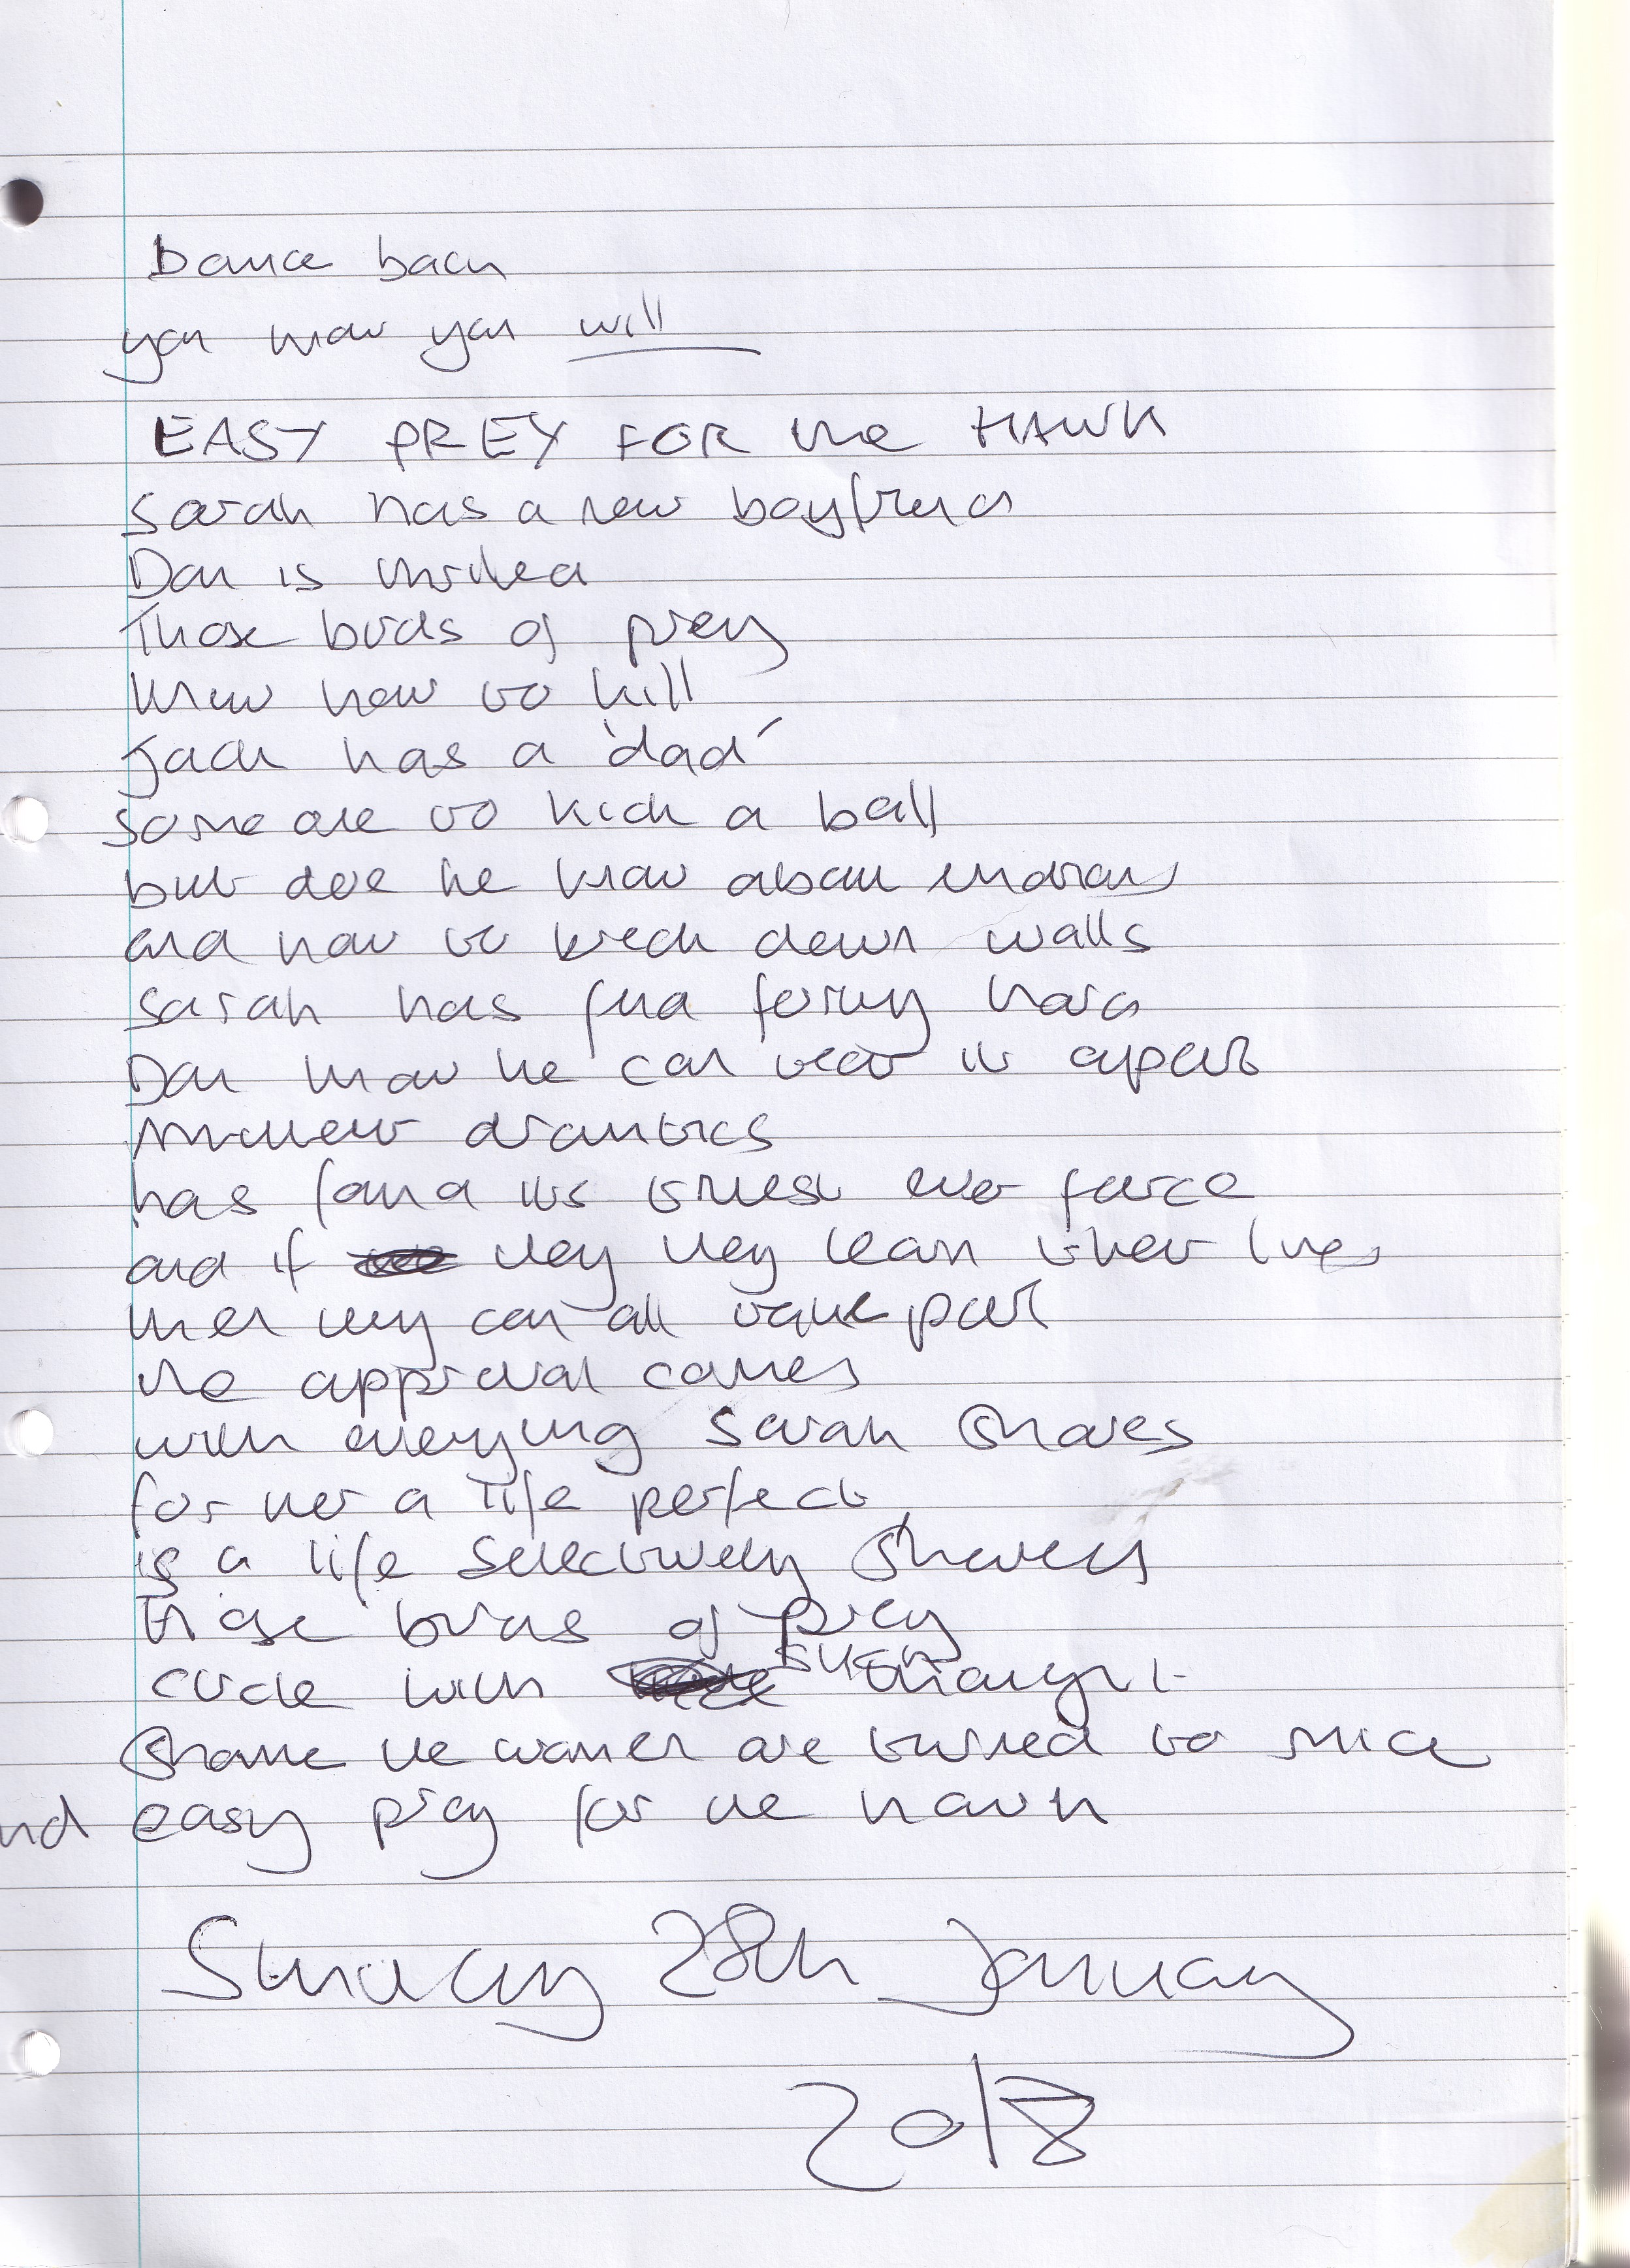 Dance back
you know you will
EASY PREY FOR the HAWK
Sarah has a new boyfriend
Dan is thrilled
Those birds of prey
know how to kill
Jack has a 'dad'
someone to kick a ball
but does he know about
and how to break down walls
Sarah has find feruy hard
Dan know he can tear it apart
drantics
has found its truest ever farce
and if they they lean their lives
then they can all take part
the approval comes
with everying Sarah shares
for her a life perfect
is a life selectively shared
Those birds of prey
circle with such thought
Shame the women are turned to mice
and easy prey for the hawk
Sunday 28th January
2018